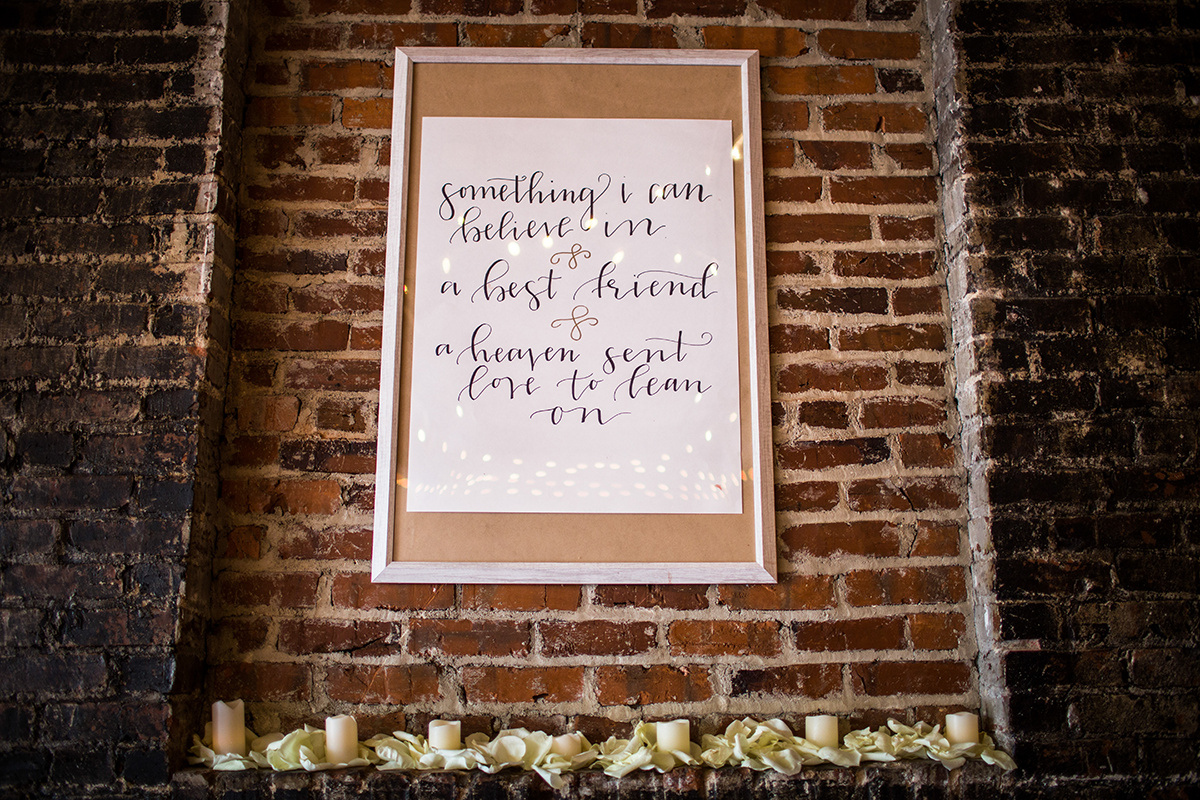 something i can
believe in
a best friend
a heaven sent
love to lean
on